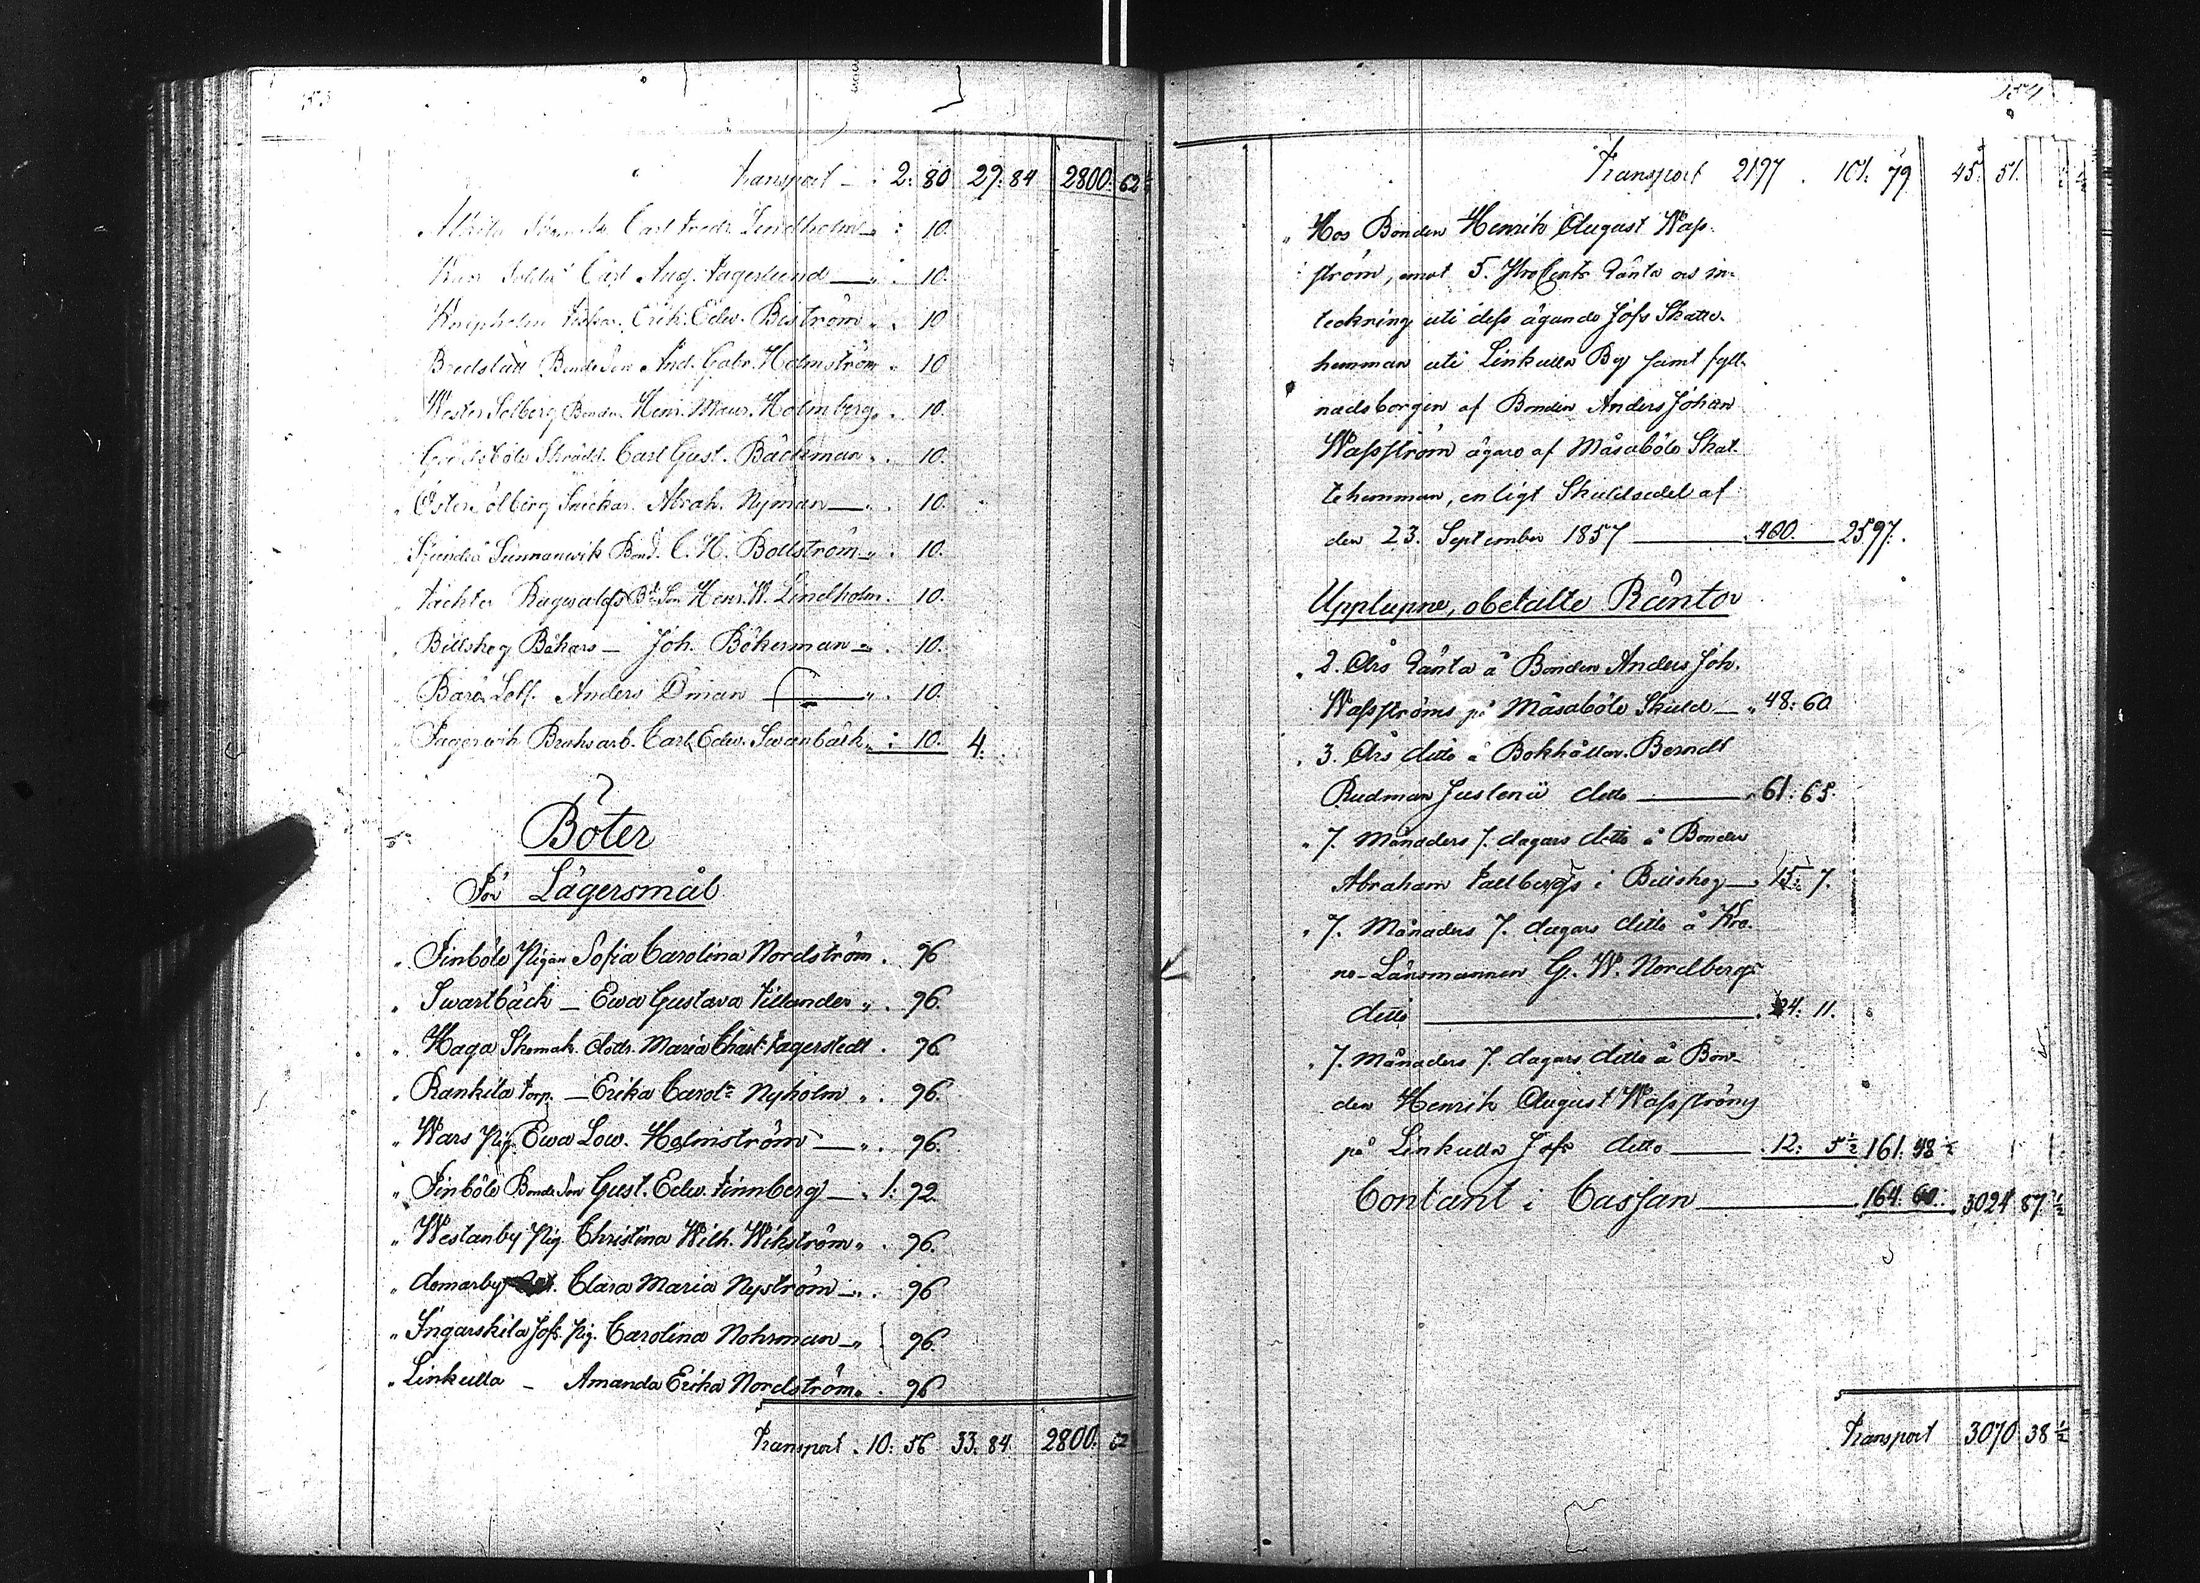 153
Transport — . 2: 80 29: 84 2800: 62 ½
Carl Fredr. Lindholm — " : 10.
Carl Aug. Fagerlund — " . 10.
Knipholm Fiskar. Erik. Edw. Biström " . 10
Bredslätt BondeSon And. Gabr. Holmström " 10
Wester Solberg Bonden Henr. Maur. Holmberg " . 10.
Skrädd. Carl Gust. Bäckman " . 10.
" Öster Snickar. Abrah. Nyman — . . 10.
Sjundeå Sunnanwik Bond. C. H. Bollström " . 10.
" Täckter Ragwalds Bd. Son Henr. W. Lindholm . 10.
" Billskog Bökars — Joh. Bökerman — " . 10.
" Barö Lots. Anders Öman — " . 10.
" Fagerwik Bruksarb. Carl Edw. Swanbäck " : 10. 4.
Böter
För Lägersmål
" Finböle Pigan Sofia Carolina Nordström . 96
" Swartbäck — Ewa Gustava Tillander " . 96.
" Haga Skomak. dotr. Maria Charl: Fagerstedt . 96
" Rankila torp. — Erika Carola Nyholm " . 96.
" Wars Pig. Ewa Low. Holmström — " . 96.
" Finböle BondeSon Gust. Edw. Finnberg — . 1: 92.
" Westanby Pig. Christina Wilh. Wikström " . 96.
" domarby Clara Maria Nyström — " . 96
" Ingarskila Jofs. Pig. Carolina Nohrman — " 96.
" Linkulla — Amanda Erika Nordström " . 96
Transport . 10: 56 33: 84. 2800: 62
154
Transport 2197 . 101: 79 45: 51. ½
" Hos Bonden Henrik August Wass-
ström, emot 5. ProCents Ränta och in-
teckning uti dess ägande Jofs Skatte-
hemman uti Linkulla By samt fyll-
nadsborgen af Bonden Anders Johan
Wassström ägare af Måsaböle Skat-
tehemman, enligt Skuldsedel af
den 23. September 1857 — 400. — 2597.
Upplupne, obetalte Räntor
" 2. Års Ränta å Bonden Anders Joh.
Wassströms på Måsaböle Skuld — " 48: 60
" 3. Års ditto å Bokhållar. Berndt
Rudman Juslenii ditto — " 61: 65.
" 7. Månaders 7. dagars ditto å Bonden
Abraham Fallbergs i Billskog — 15: 7.
" 7. Månaders 7. dagars ditto å Kro-
no-Länsmannen G. W. Nordbergs
ditto — . 24: 11.
" 7. Månaders 7. dagars ditto å Bon-
den Henrik August Wassströms
på Linkulla Jofs ditto — . 12: 5 ½ 161: 48 ½
Contant i Cassan — . 164: 60. 3024 87 ½
Transport 3070 38 ½